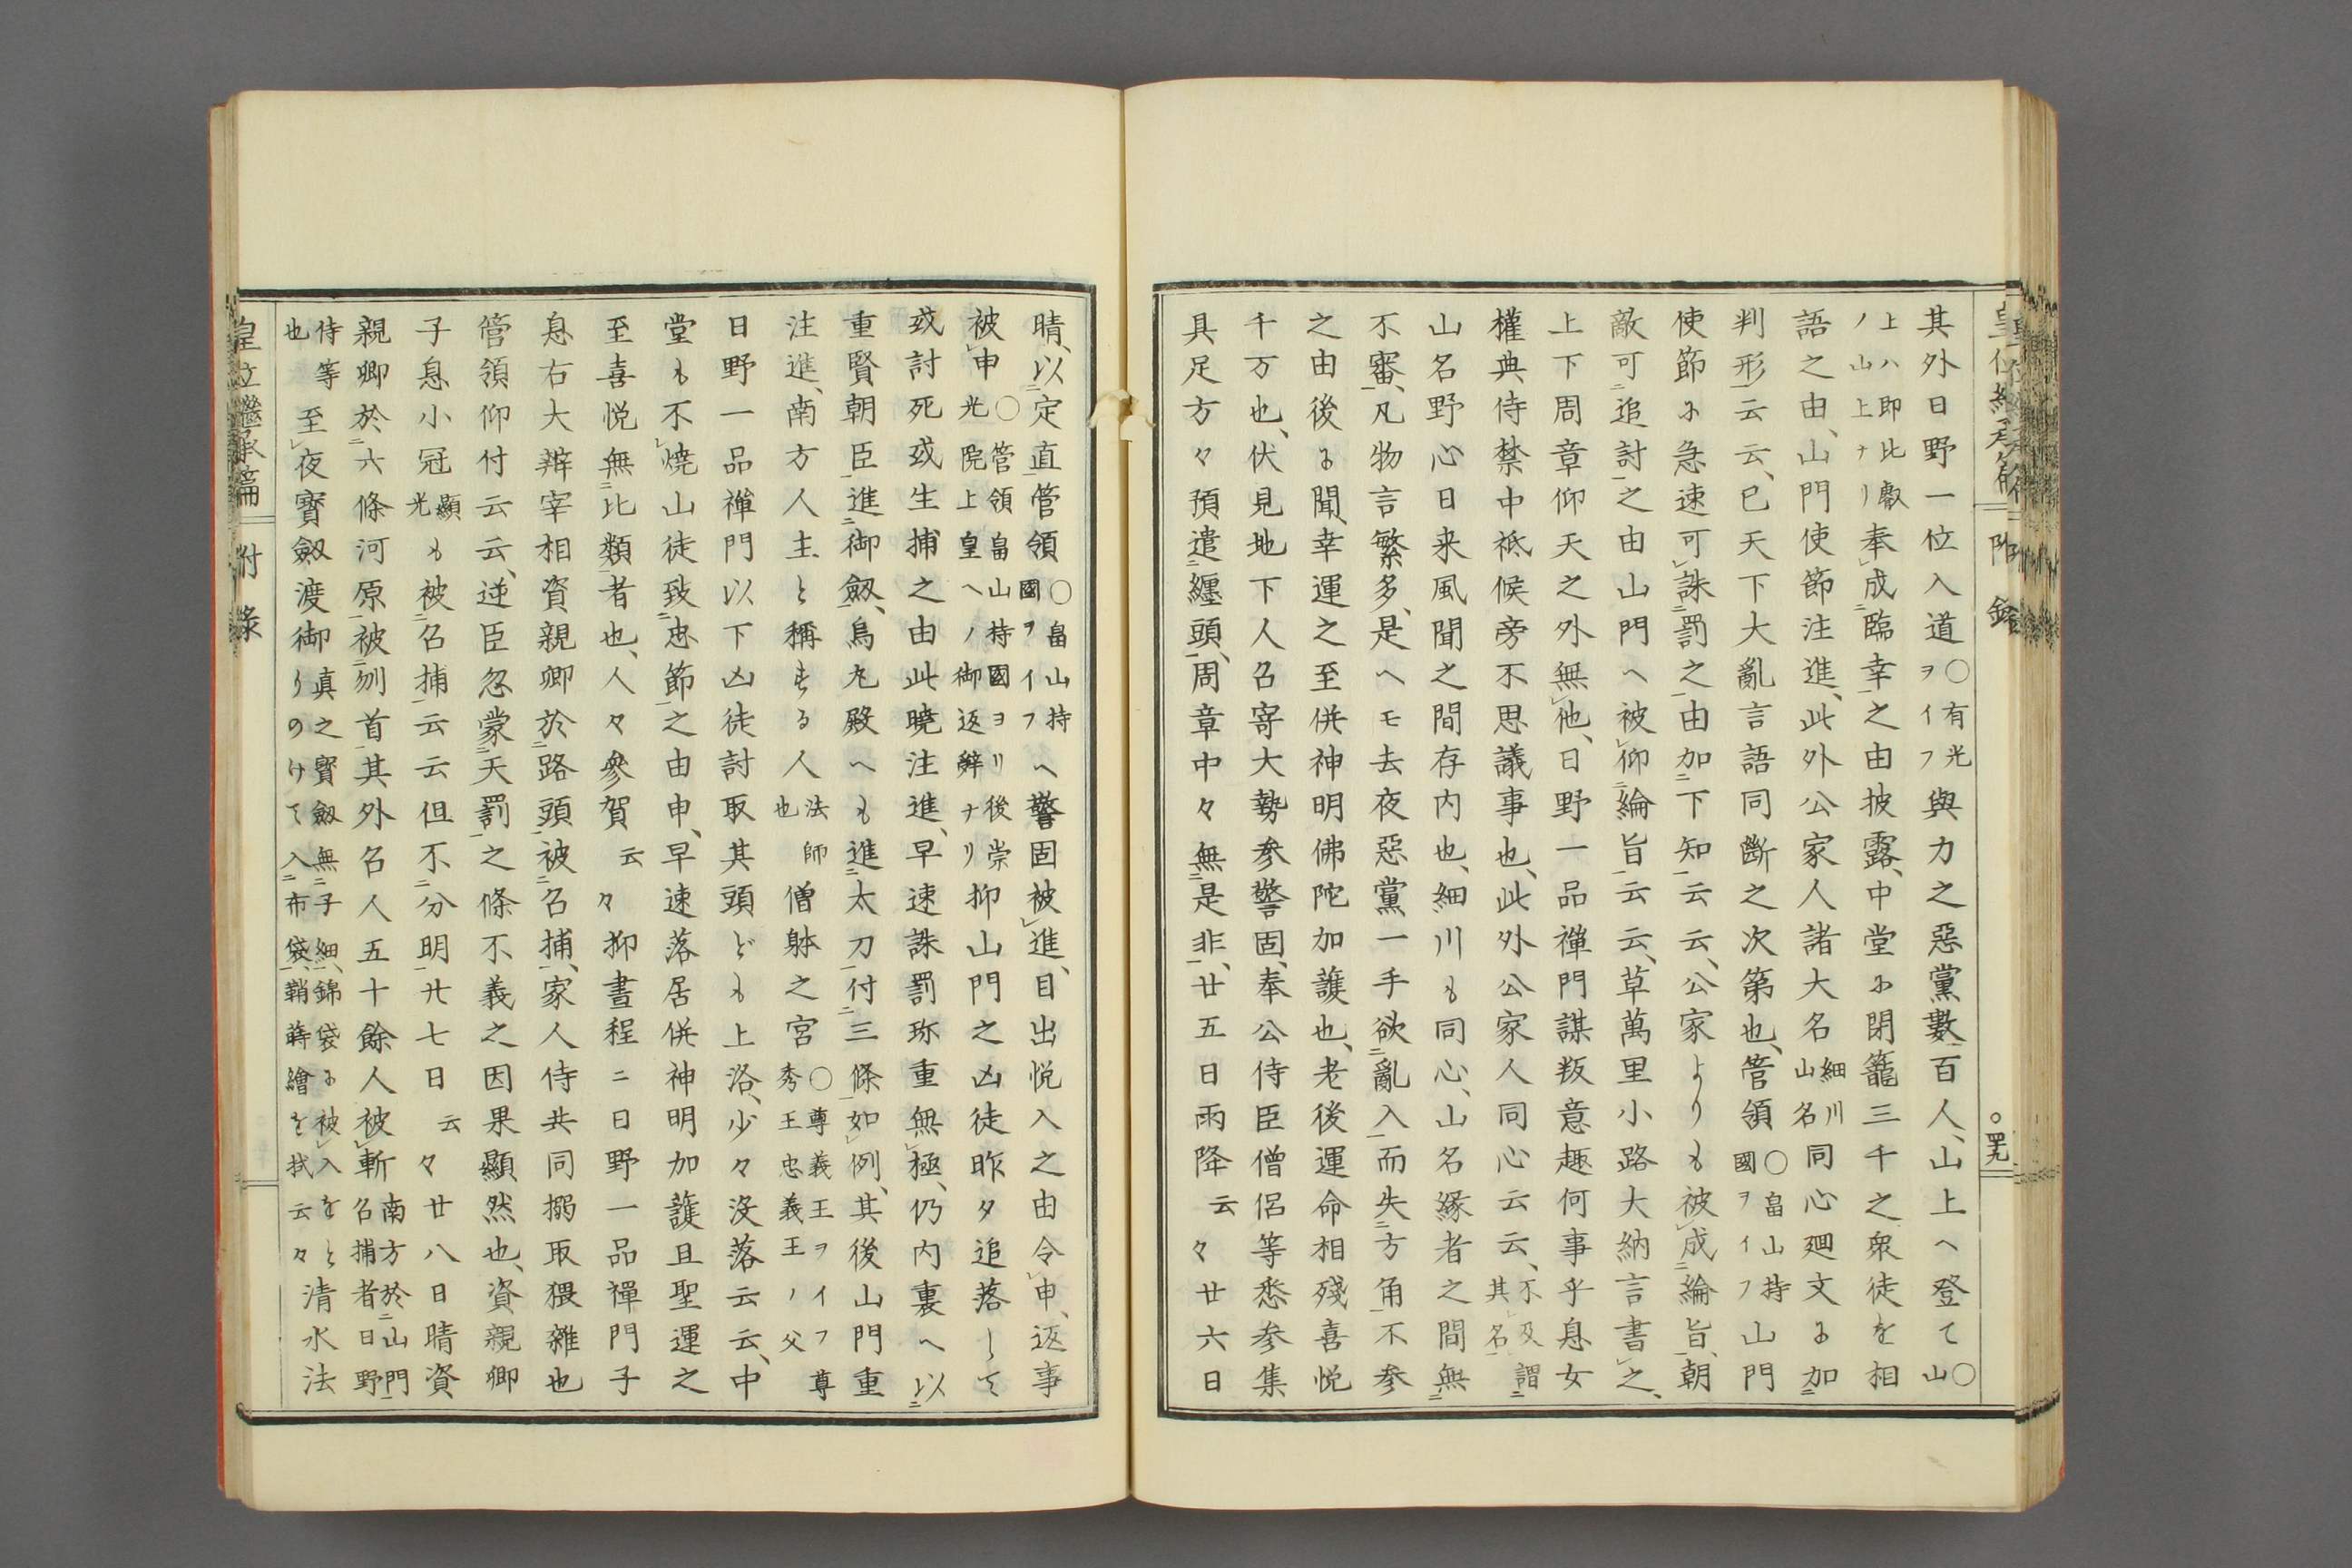 其外日野一位入道○有光ヲイフ與力之惡黨數百人、山上へ登て○山
上ハ即比叡ノ山上ナリ奉成臨幸之由披露、中堂ニ閉籠三千之衆徒を相
語之由、山門使節注進、此外公家人諸大名細川山名同心廻文ニ加
判形云云、已天下大亂言語同斷之次第也、管領○畠山持國ヲイフ山門
使節ニ急速可誅罰之由加下知云云、公家よりも被成綸旨、朝
敵可追討之由山門へ被仰綸旨云云、草萬里小路大納言書之、
上下周章仰天之外無他、日野一品禪門謀叛意趣何事乎息女
權典侍禁中祗候旁不思議事也、此外公家人同心云云、不及謂其名
山名野心日来風聞之間存内也、細川も同心、山名縁者之間無
不審、凡物言繁多、是へモ去夜惡黨一手欲亂入而失方角不参
之由後ニ聞、幸運之至併神明佛陀加護也、老後運命相殘喜悦
千万也、伏見地下人召寄大勢参警固、奉公侍臣僧侶等悉参集
具足方々預遣纏頭、周章中々無是非、廿五日雨降云々廿六日
晴、以定直管領○畠山持國ヲイフへ警固被進、目出悦入之由令申、返事
被申○管領畠山持國ヨリ後崇光院上皇へノ御返辭ナリ抑山門之凶徒昨夕追落して
或討死或生捕之由此曉注進、早速誅罰珎重無極、仍内裏へ以
重賢朝臣進御劔、烏丸殿へも進太刀付三條如例、其後山門重
注進、南方人主と稱する人法師也僧躰之宮○尊義王ヲイフ尊秀王忠義王ノ父
日野一品禪門以下凶徒討取其頭ども上洛、少々沒落云云、中
堂も不燒山徒致忠節之由申、早速落居併神明加護且聖運之
至喜悦無比類者也、人々參賀云々抑晝程ニ日野一品禪門子
息右大辨宰相資親卿於路頭被召捕、家人侍共同搦取猥雜也
管領仰付云云、逆臣忽蒙天罰之條不義之因果顯然也、資親卿
子息小冠顯光も被召捕云云但不分明廿七日云々廿八日晴資
親卿於六條河原被刎首其外召人五十餘人被斬南方於山門召捕者日野
侍等也至夜寶劔渡御りのけて真之寶劔無子細、錦袋ニ被入をと入布袋、鞘蒔繪を拭云々清水法
皇位繼承篇 附録
○四十九